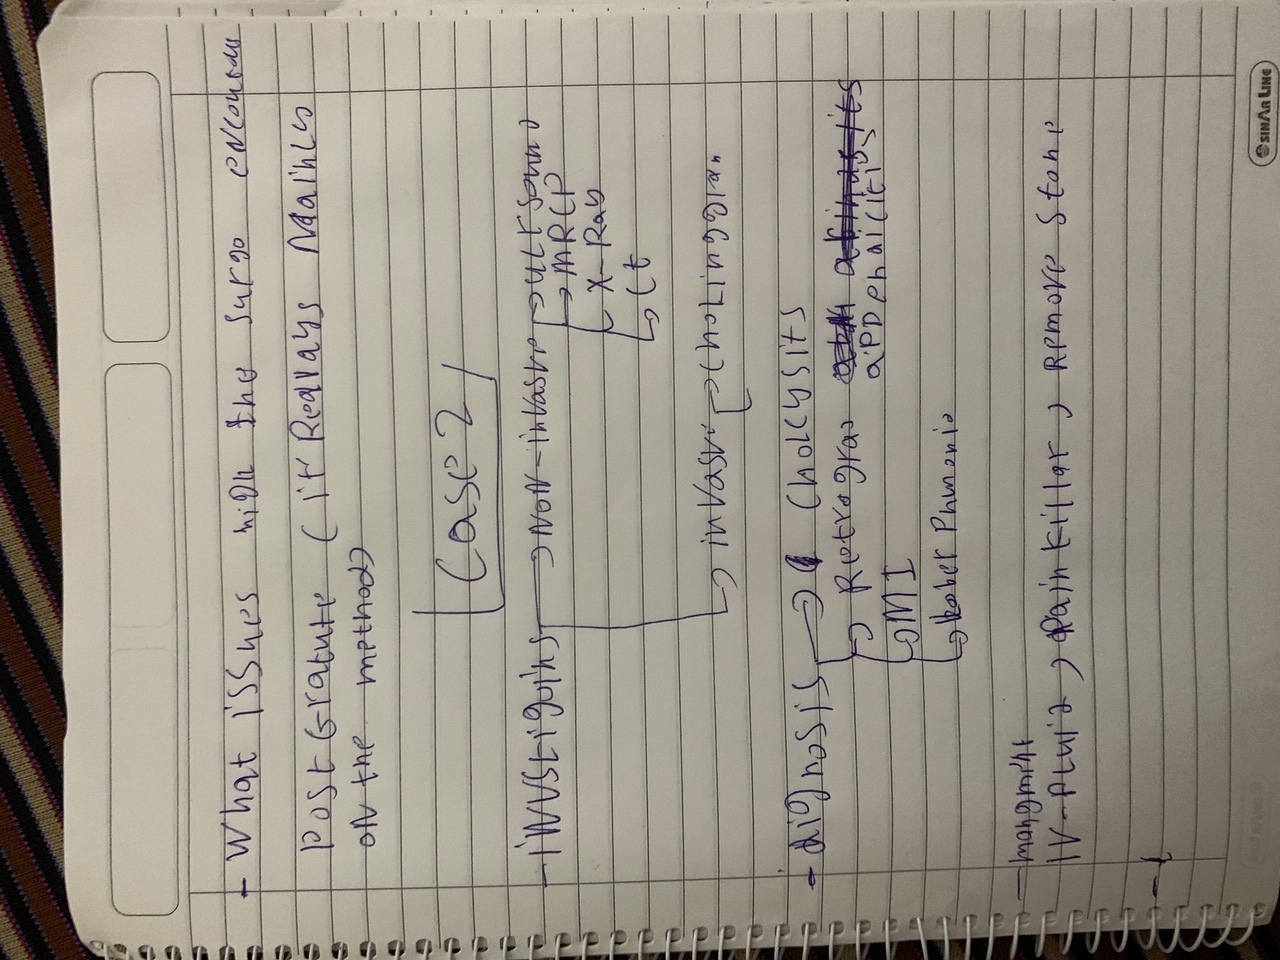 - What issues nigh the surgo encounter
Post Grature (it Realays Mainly
on the method)
Case 2
- invstigoins → Non-invasve → ultrsound
→ MRCP
→ X-Ray
→ Ct
→ invasve → Cholinggian
- dignosis → Cholcysits
→ Retrogra appenalcitis
→ MI
→ lober Phmonia
- mangment
IV-Pluid, Pain killar, Remove Stone
-
SINAR LINE